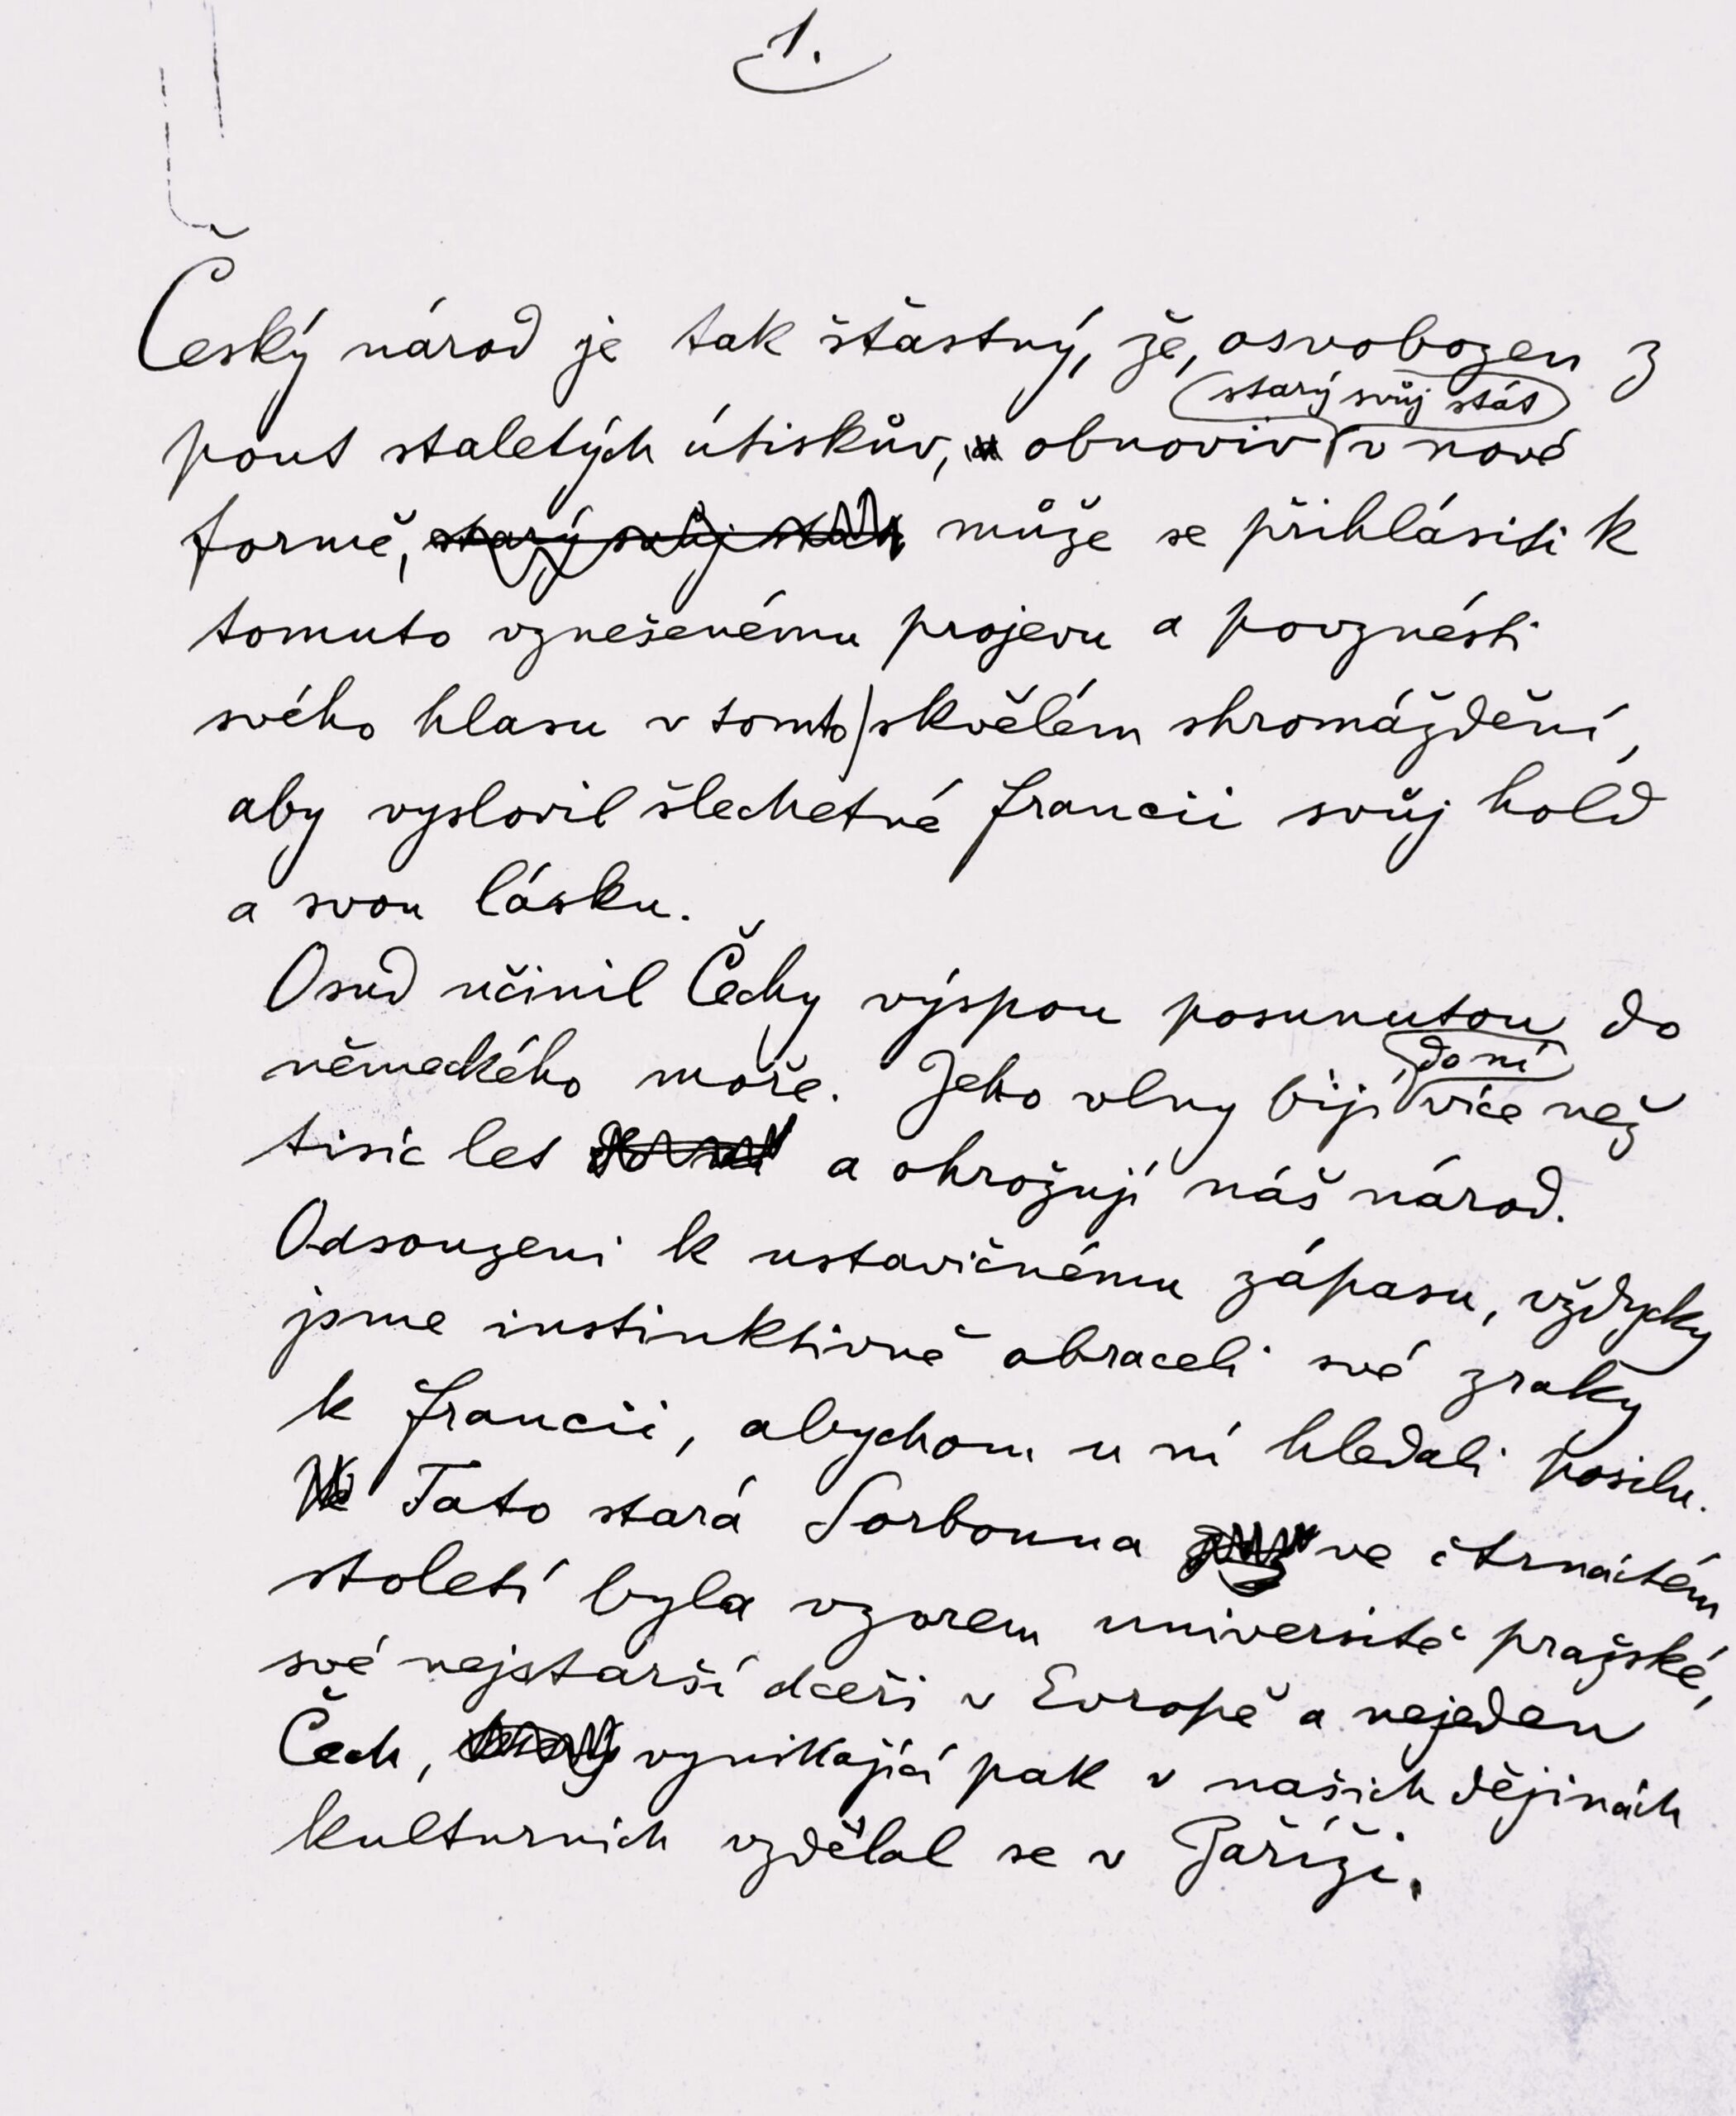 1.
Český národ je tak šťastný, že, osvobozen z
starý svůj stát
pout staletých útiskův, obnoviv v nové
formě, starý svůj stát může se přihlásiti k
tomuto vznešenému projevu a povznésti
svého hlasu v tomto skvělém shromáždění,
aby vyslovil šlechetné Francii svůj hold
a svou lásku.
Osud učinil Čechy výspou posunutou do
do ní
německého moře. Jeho vlny bijí více než
tisíc let do ní a ohrožují náš národ.
Odsouzeni k ustavičnému zápasu, vždycky
jsme instinktivně obraceli své zraky
k Francii, abychom u ní hledali posilu.
Tato stará Sorbonna ve čtrnáctém
století byla vzorem universitě pražské,
své nejstarší dceři v Evropě a nejeden
Čech, vynikající pak v našich dějinách
kulturních vzdělal se v Paříži.